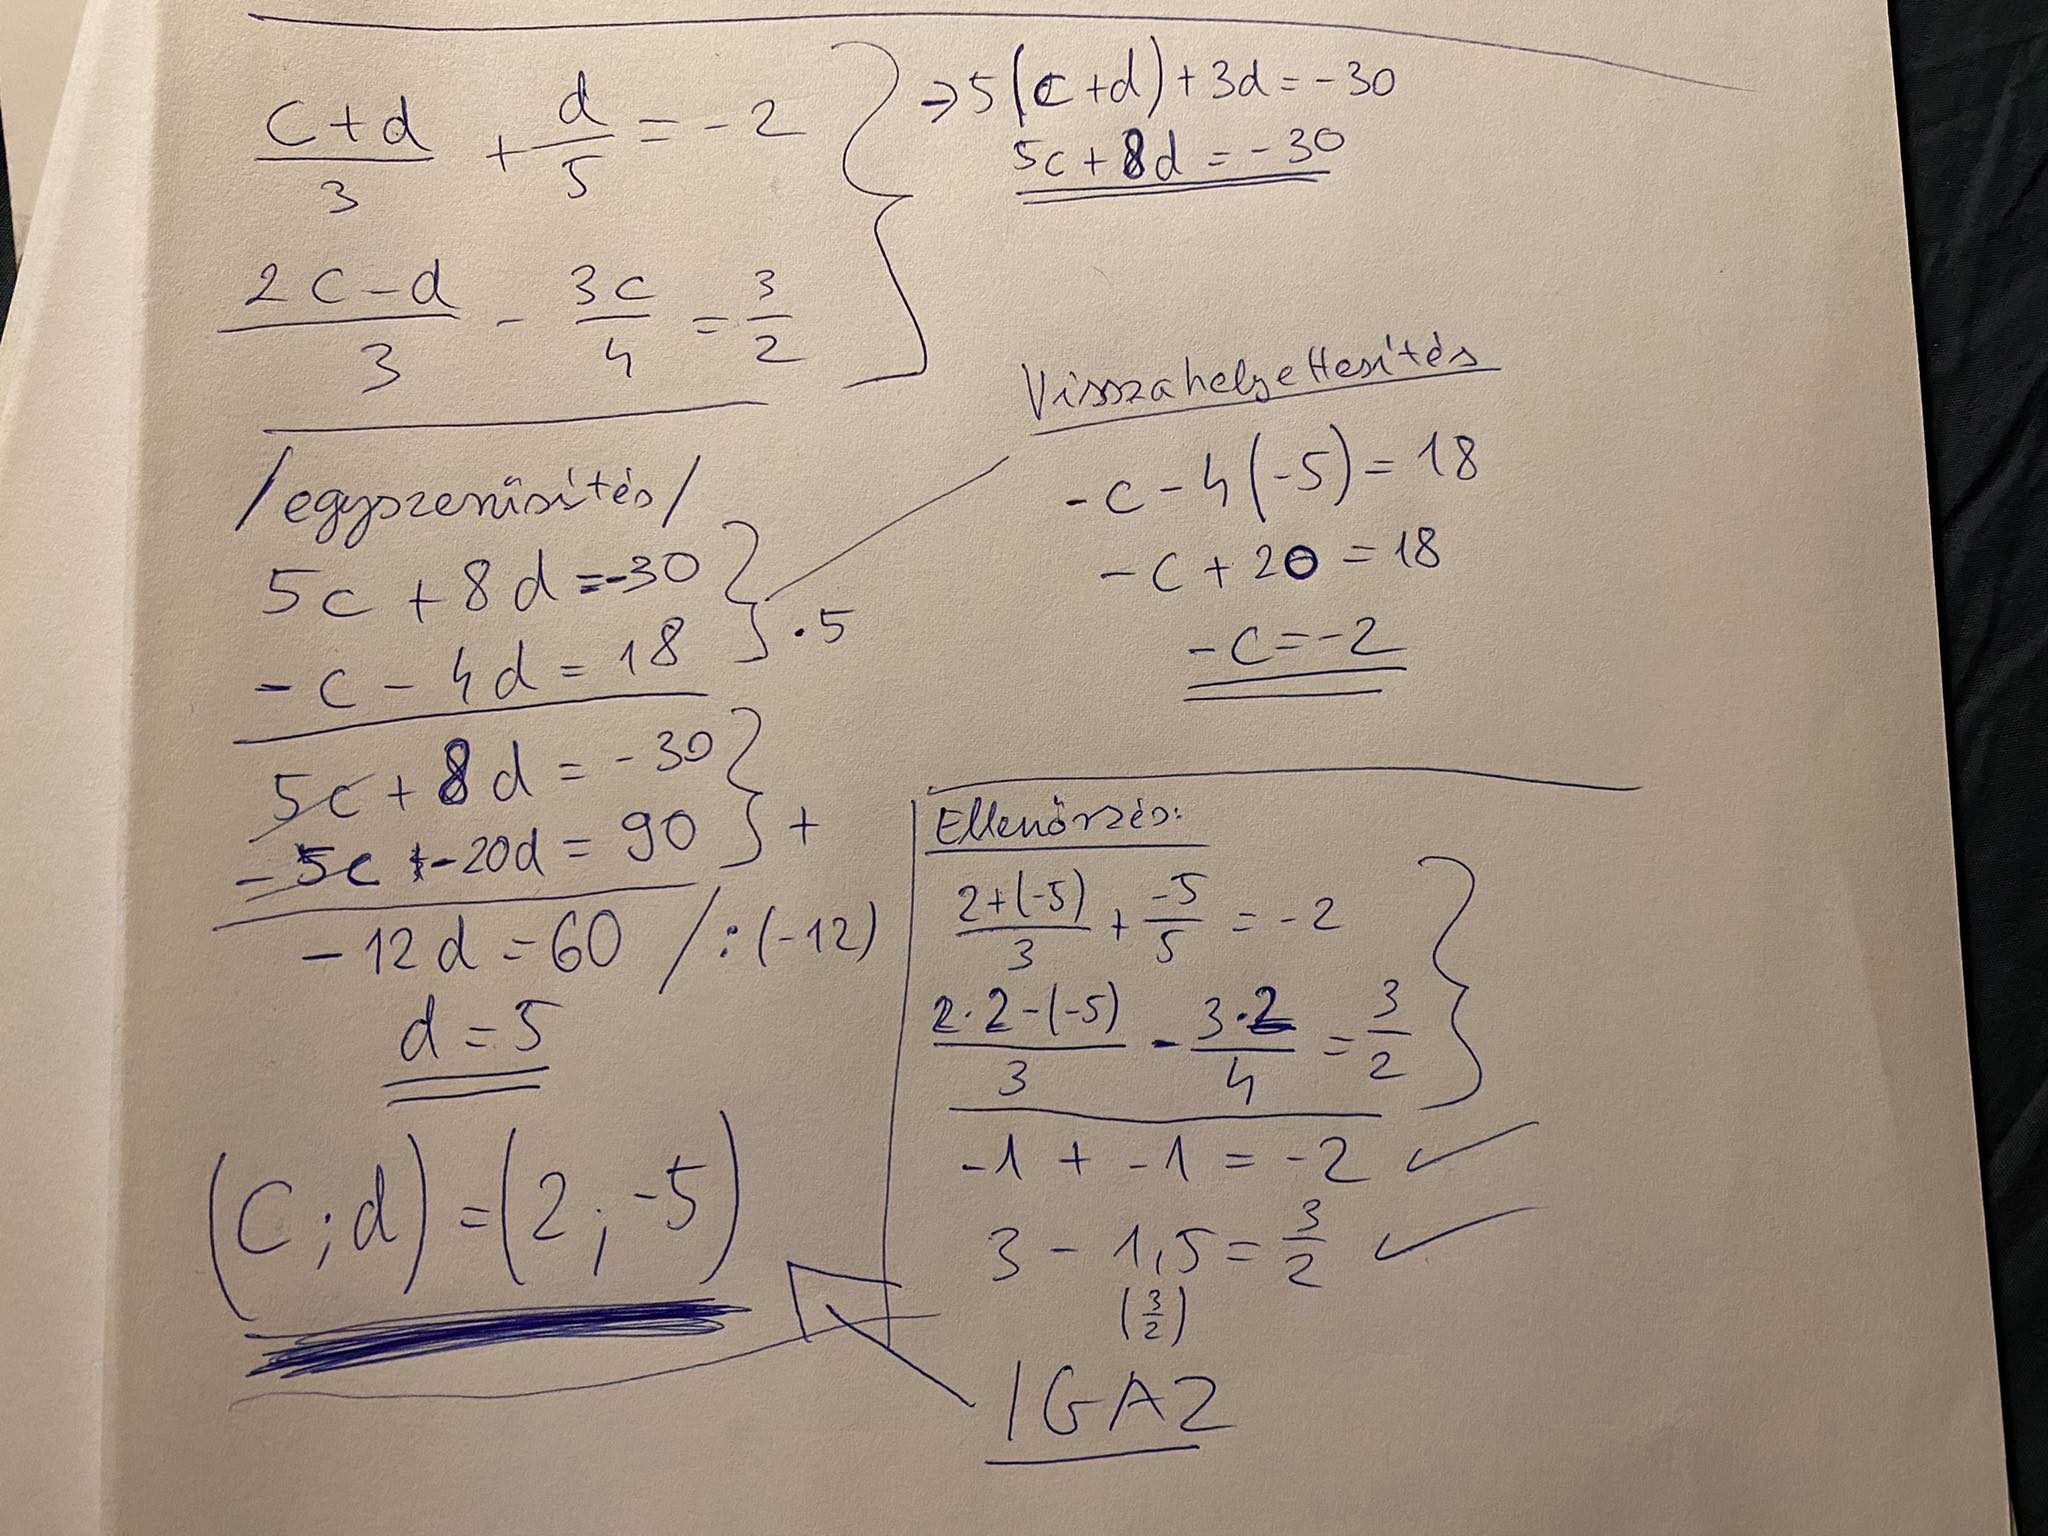 (c+d)/3 + d/5 = -2
(2c-d)/3 - 3c/4 = 3/2
→ 5(c+d)+3d=-30
5c+8d=-30
/egyszerűsítés/
5c+8d=-30
-c-4d=18 ·5
5c+8d=-30
-5c-20d=90 +
-12d=60 /:(-12)
d=5
(c;d)=(2;-5)
Visszahelyettesítés
-c-4(-5)=18
-c+20=18
-c=-2
Ellenőrzés:
(2+(-5))/3 + -5/5 = -2
(2·2-(-5))/3 - 3·2/4 = 3/2
-1+-1=-2 ✓
3-1,5=3/2 ✓
(3/2)
IGAZ